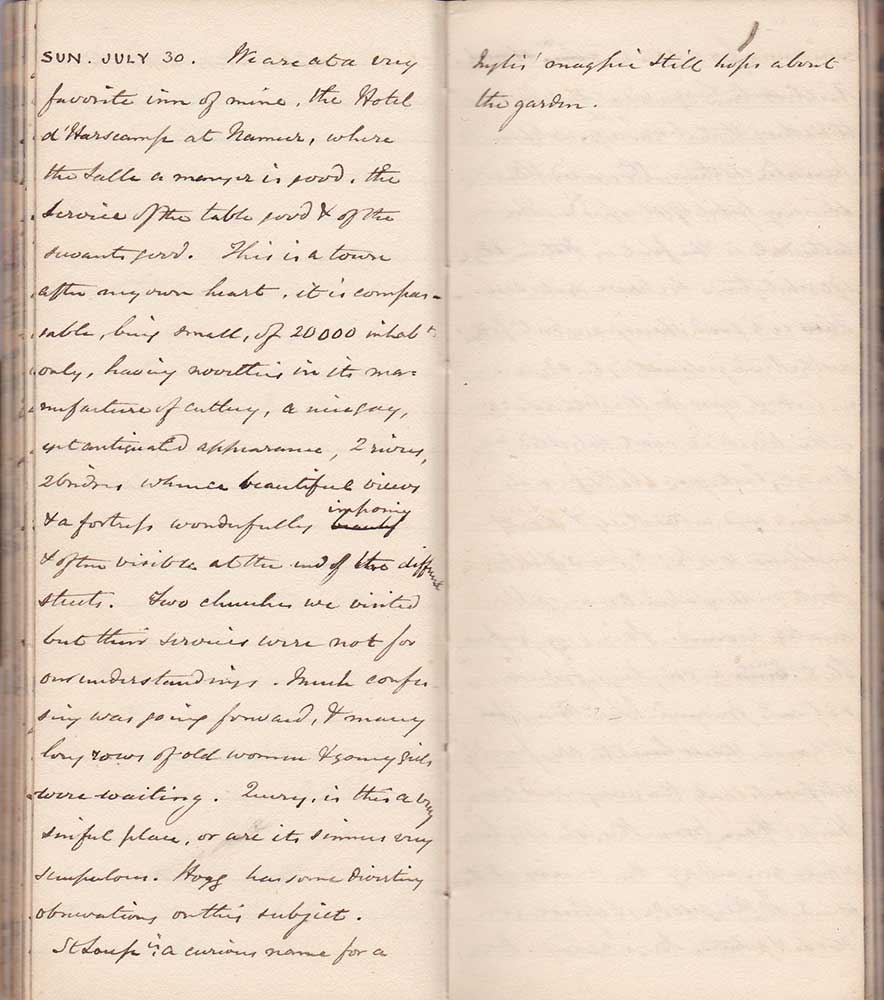 SUN. JULY 30. We are at a very
favorite inn of mine, the Hotel
d'Harscamp at Namur, where
the Salle a manger is good, the
service of the table good & of the
servants good. This is a town
after my own heart, it is compas-
sable, being small, of 20000 inhabts
only, having novelties in its ma-
nufacture of cutlery, a nice gay,
yet antiquated appearance, 2 rivers,
2 bridges whence beautiful views
& a fortress wonderfully imposing
& often visible at the end of the different
streets. Two churches we visited
but their services were not for
our understandings. Much confes-
sing was going forward, & many
long rows of old women & young girls
were waiting. Query, is this a very
sinful place, or are its sinners very
scrupulous. Hogg has some diverting
observations on this subject.
St Loup is a curious name for a
magpie still hops about
the garden.